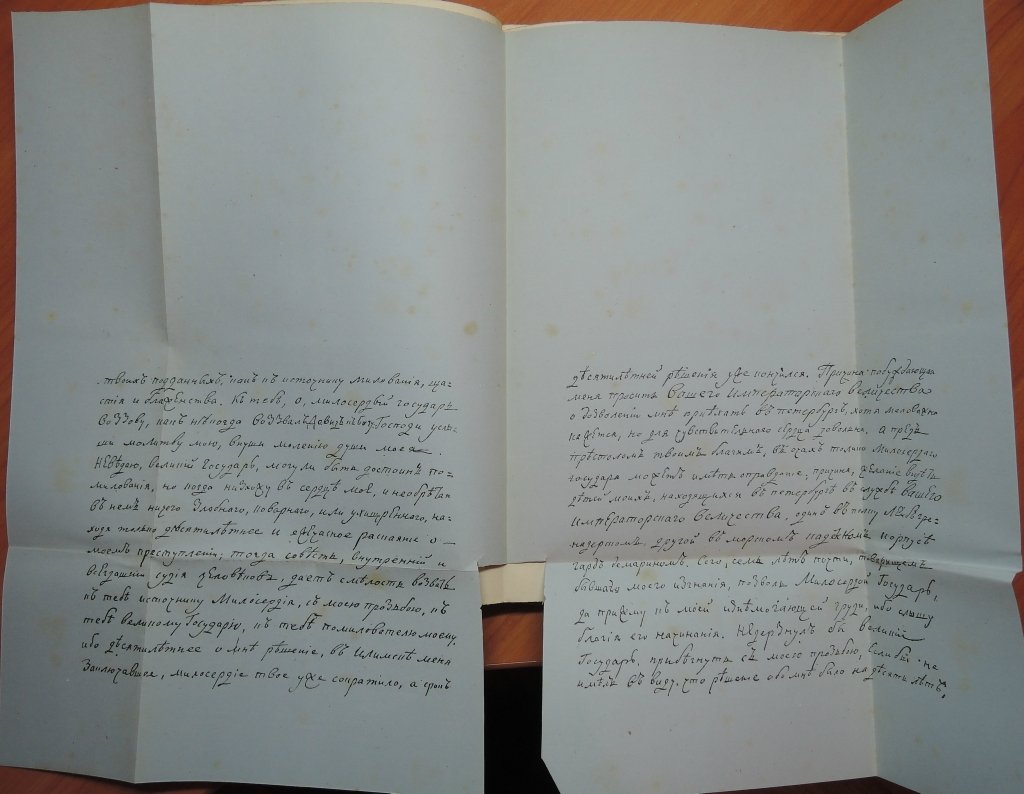 твоихъ подданныхъ, какъ къ источнику милованія, ща=
стія и блаженства. Къ тебѣ, о, милосердый государь
воззову, какъ нѣкогда воззвалъ Давидъ къ богу: Господи услы=
ши молитву мою, внуши моленію души моея.
Невѣдею, великій Государь, могу ли быть достоинъ по=
милованія, но когда нисхожу въ сердце мое, и необрѣтаю
въ немъ ничего злобнаго, коварнаго, или ухищреннаго, на=
ходя только десятилѣтнее и всечасное распаяте о
моемъ преступленіи; тогда совѣсть, внутренній и
всегдашній судія человѣковъ, даетъ смѣлость возвать
къ тебѣ источнику Милосердія, съ моею прозьбою, къ
тебѣ великому Государю, къ тебѣ помилователю моему,
ибо десятилѣтнее о мнѣ рѣшеніе, въ Илимскѣ меня
Заключавшее, милосердіе твое уже сократило, а срокъ
десятилѣтней рѣшенія уже кончился. Причина побуждающая
меня просить Вашего Императорскаго Величества
о дозволеніи мнѣ пріѣхать въ петербургъ, хотя маловажно
кажется, но для чувствительнаго сердца довольна, а предъ
прѣстоломъ твоимъ благимъ, въ очахъ толико Милосердаго
государа можетъ имѣть оправданіе; причина, желаніе видѣть
дѣтей моихъ, находящихся въ петербургѣ въ службѣ Вашего
Императорскаго Величества, одинъ въ полку Л. Гв. гре=
надерскомъ, другой въ морскомъ кадецкомъ корпусѣ
гардо демариномъ. Сего, семь лѣтъ почти, товарищемъ
бывшаго моего изгнанія, позволь Милосердой Государь,
да прижму къ моей изнемогающей груди, ибо слышу
благія его начинанія. Недерзнулъ бы великій
Государь, прибѣгнуть съ моею прозьбою, если бы не
имѣлъ въ виду, что рѣшеніе обо мнѣ было на десять лѣтъ,